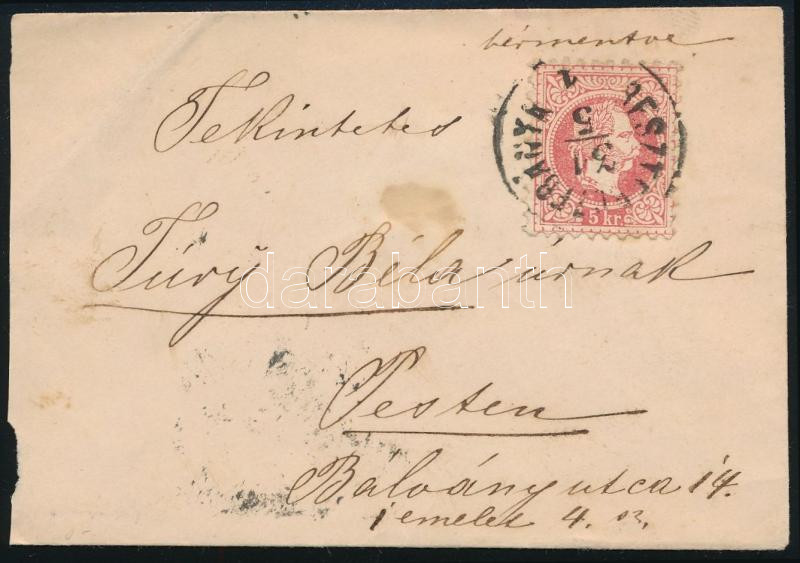 bérmentve
Tekintetes
Túry Béla urnak
Pesten
Balvány utca 14.
1 emelet 4. sz.
5 kr.
darabanth